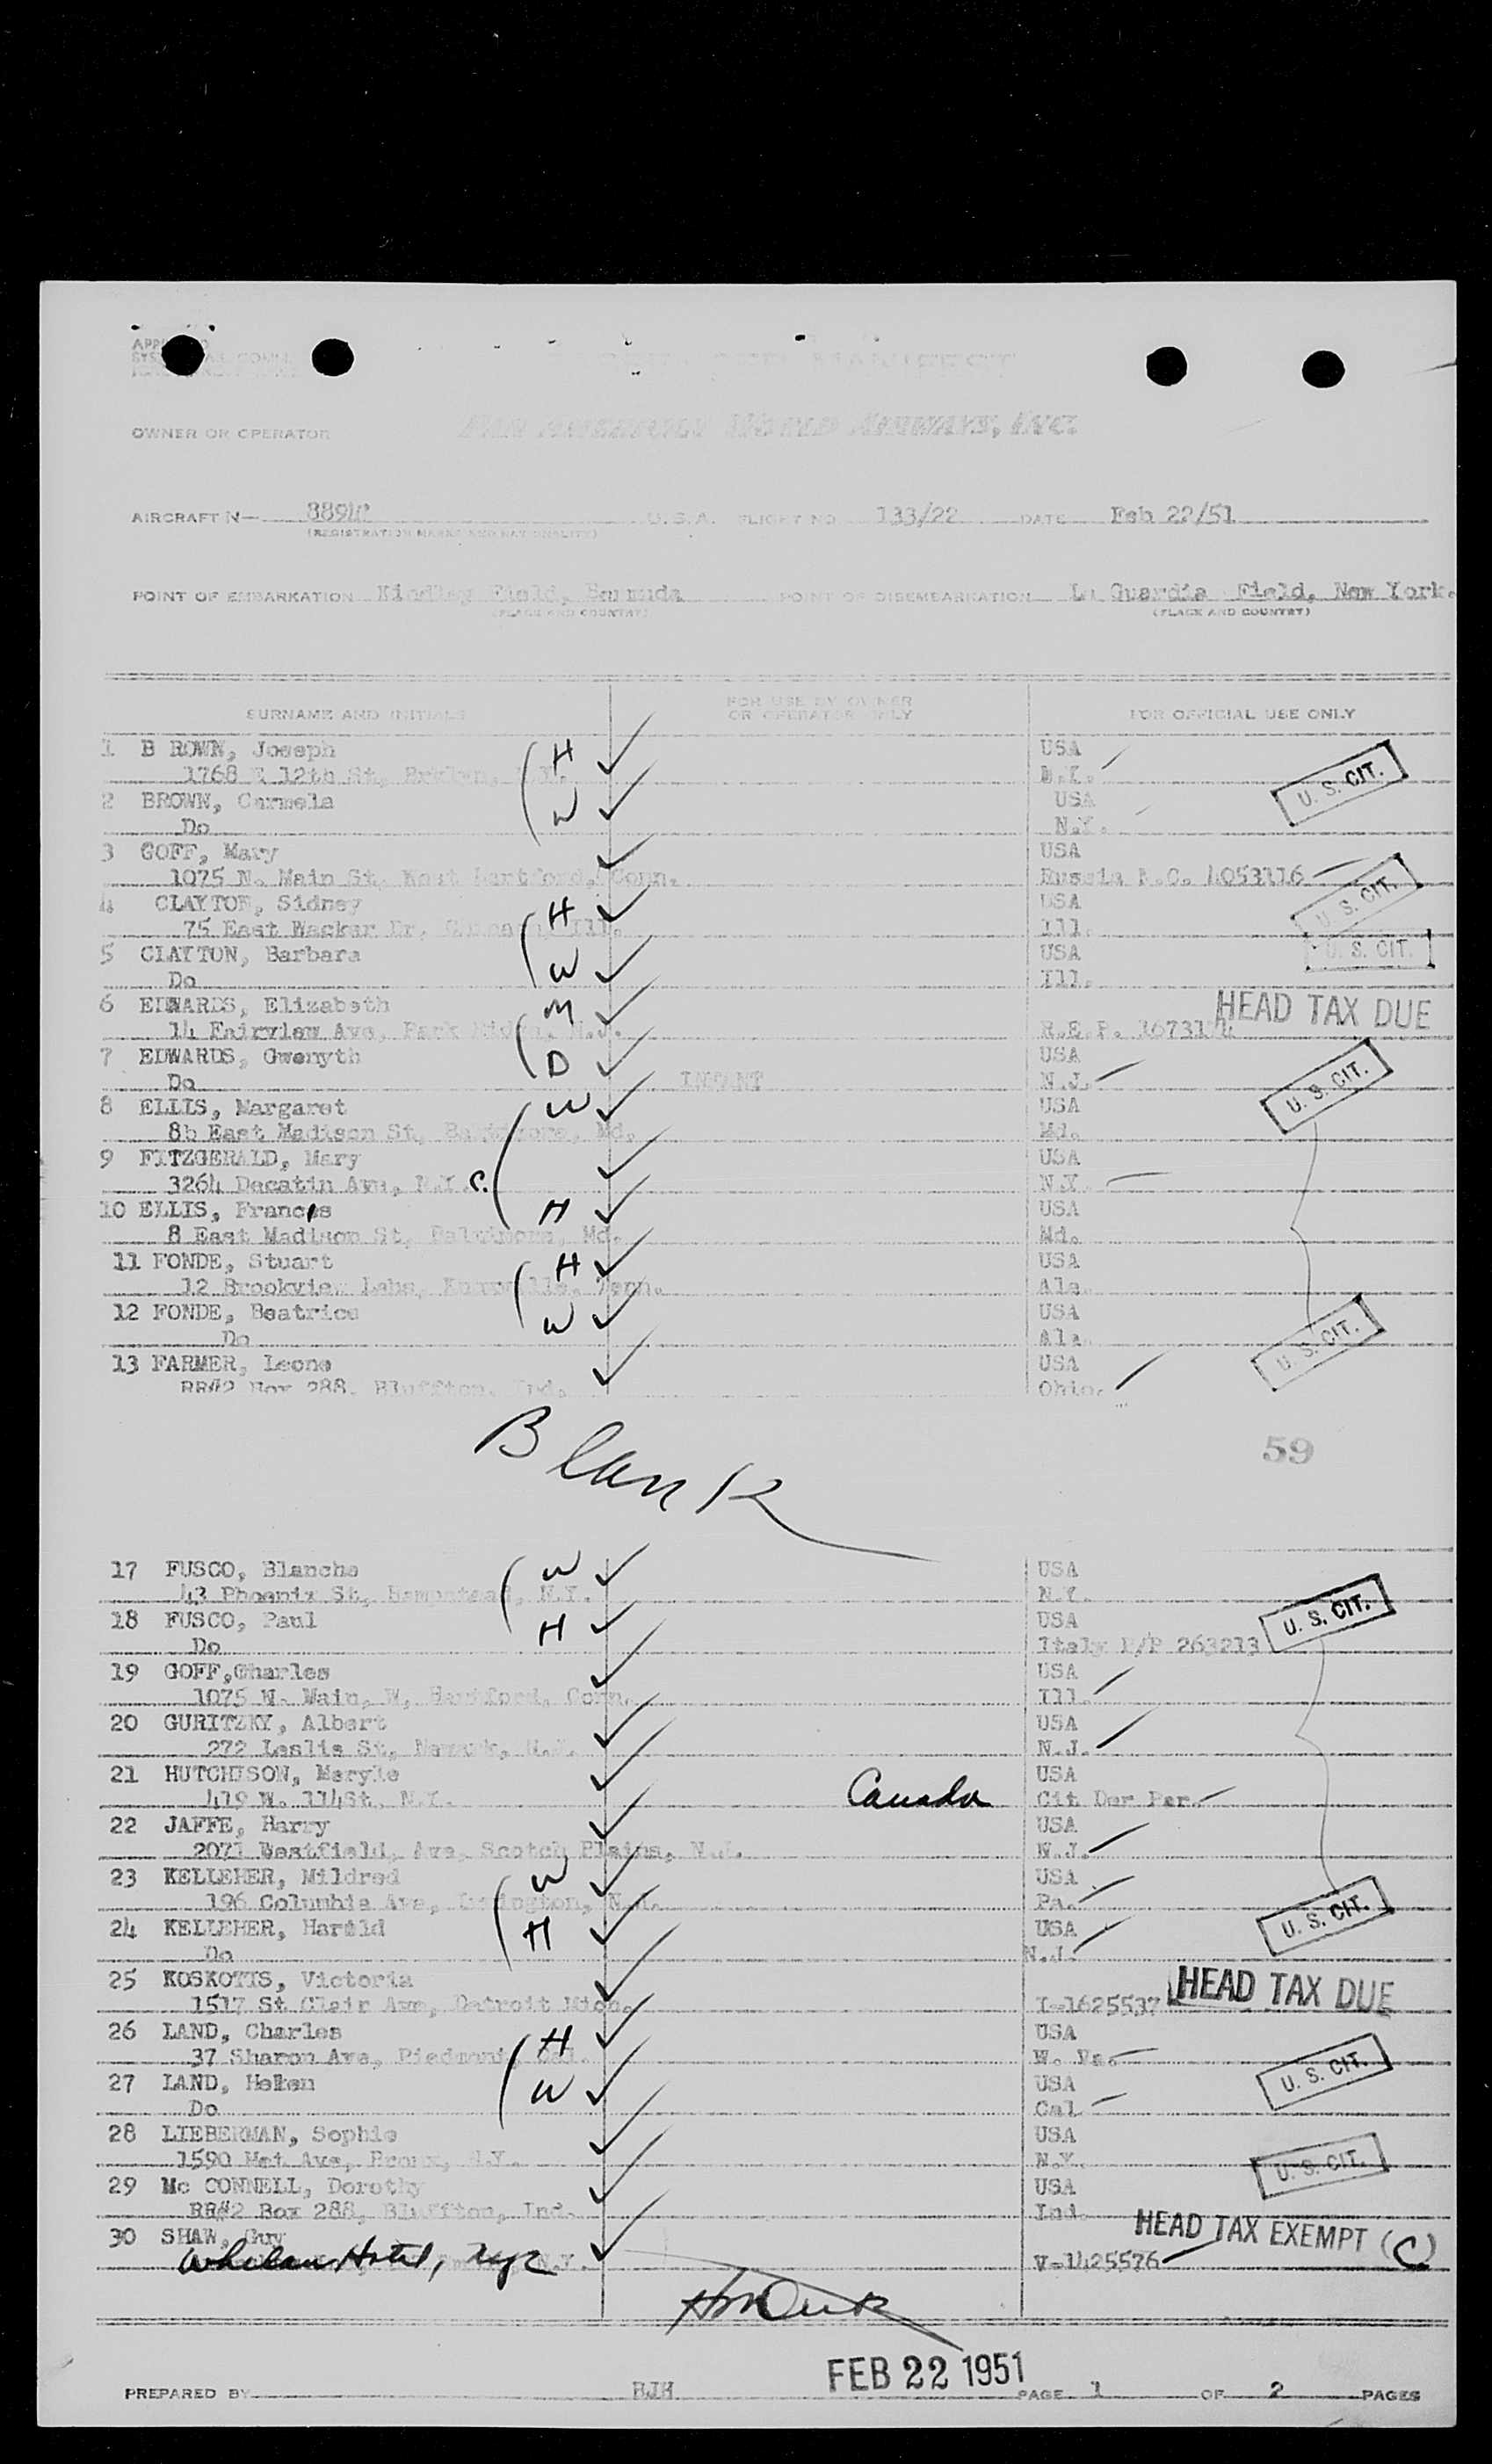 OWNER OR OPERATOR PAN AMERICAN WORLD AIRWAYS, INC.
AIRCRAFT N— U.S.A. FLIGHT NO 133/22 DATE Feb 22/51
(REGISTRATION MARKS AND NATIONALITY)
POINT OF EMBARKATION Kindley Field, Bermuda POINT OF DISEMBARKATION La Guardia Field, New York.
(PLACE AND COUNTRY) (PLACE AND COUNTRY)
SURNAME AND INITIALS FOR USE BY OWNER OR OPERATOR ONLY FOR OFFICIAL USE ONLY
1 B ROWN, Joseph H USA
1768 E 12th St, N.Y. U. S. CIT.
2 BROWN, Carmela W USA
Do N.Y.
3 GOFF, Mary USA
1075 N. Main St, Conn. Russia N.C. 4053116
4 CLAYTON, Sidney H USA U. S. CIT.
75 East Wacker Dr, Ill. Ill.
5 CLAYTON, Barbara W USA U. S. CIT.
Do Ill.
6 EDWARDS, Elizabeth M HEAD TAX DUE
14 Fairview Ave, Park N.J. R.E.P.
7 EDWARDS, Gwenyth D USA
Do INFANT N.J. U. S. CIT.
8 ELLIS, Margaret W USA
8b East Madison St, Baltimore, Md. Md.
9 FITZGERALD, Mary USA
3264 Decatin Ave, N.Y.C. N.Y.
10 ELLIS, Francis H USA
8 East Madison St, Baltimore, Md. Md.
11 FONDE, Stuart H USA
12 Brookview Tenn. Ala.
12 FONDE, Beatrice W USA
Do Ala. U. S. CIT.
13 FARMER, Leone USA
RR#2 Box 288, Bluffton, Ind. Ohio.
Blank
59
17 FUSCO, Blanche W USA
43 Phoenix St, Hempstead, N.Y. N.Y.
18 FUSCO, Paul H USA U. S. CIT.
Do Italy P/P 263213
19 GOFF,Charles USA
1075 N. Main, W, Hartford, Conn. Ill.
20 GURITZKY, Albert USA
272 Leslie St, Newark, N.J. N.J.
21 HUTCHISON, USA
419 W. 114St, N.Y. Canada Cit Der Par.
22 JAFFE, Harry USA
2071 Westfield, Ave, Scotch Plains, N.J. N.J.
23 KELLEHER, Mildred W USA
196 Columbia Ave, N.J. Pa.
24 KELLEHER, Harold H USA U. S. CIT.
Do N.J.
25 KOSKOTIS, Victoria HEAD TAX DUE
1517 St Clair Ave, Detroit Mich. I-1625537
26 LAND, Charles H USA
37 Sharon Ave, Piedmont, Cal. W. Va.
27 LAND, Helen W USA U. S. CIT.
Do Cal
28 LIEBERMAN, Sophie USA
1590 Ave, Bronx, N.Y. N.Y.
29 Mc CONNELL, Dorothy USA U. S. CIT.
RR#2 Box 288, Bluffton, Ind. Ind.
30 SHAW, Guy HEAD TAX EXEMPT (C)
Hotel, nyc N.Y. V-1425576
FEB 22 1951
PREPARED BY BJH PAGE 1 OF 2 PAGES